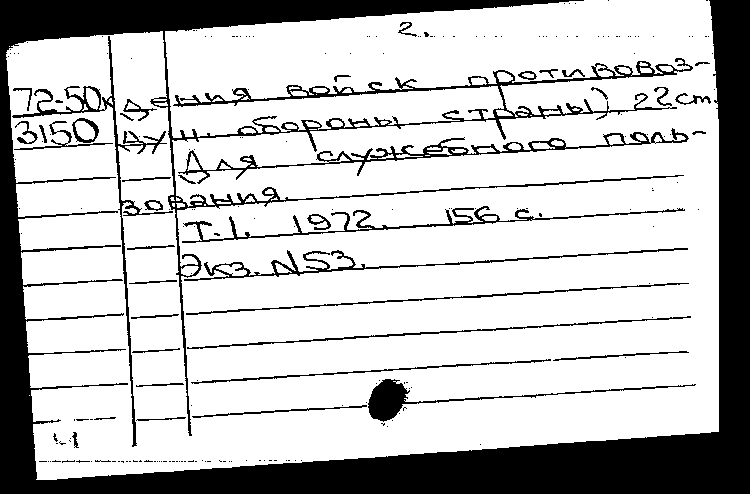 2.
72-50к дения войск противовоз-
3150 душ. обороны страны). 22 cm.
Для служебного поль-
зования.
Т.1. 1972. 156 с.
Экз. N53.
Ч